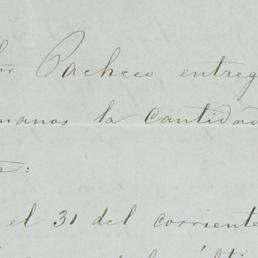 Pacheco entreg
manos la cantidad
el 31 del corriente